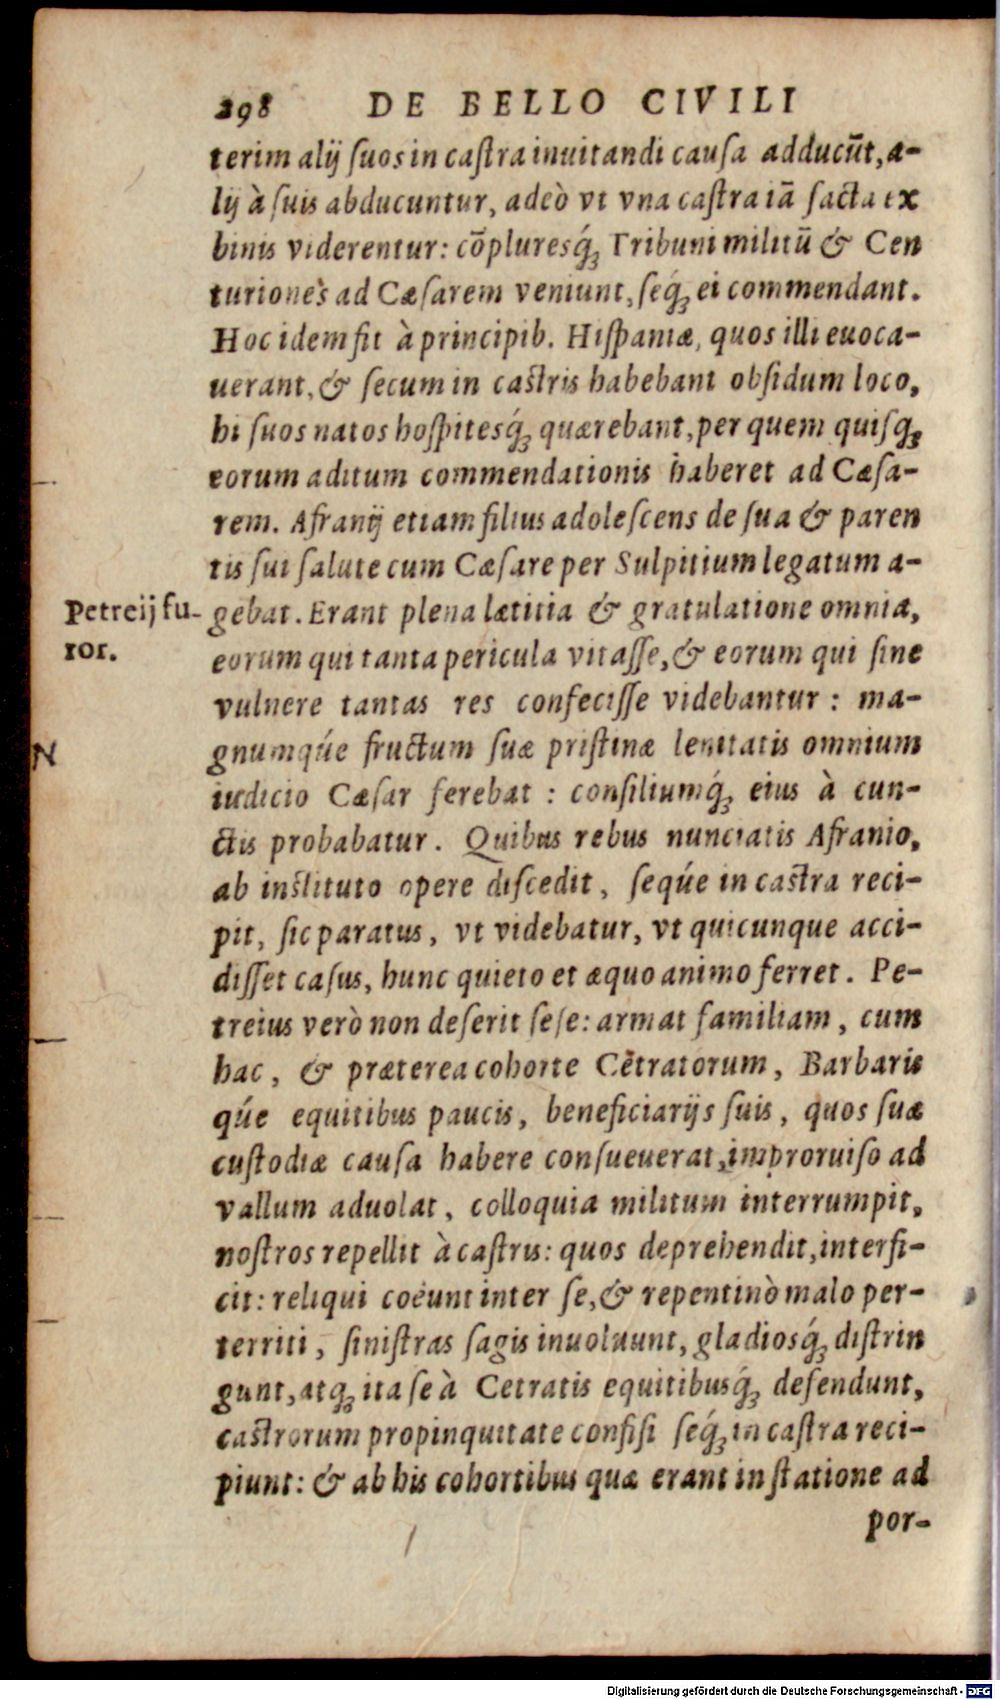 298 DE BELLO CIVILI
terim alij ſuos in caſtra inuitandi cauſa adducūt, a-
lij à ſuis abducuntur, adeò vt vna caſtra iā facta ex
binis viderentur: cōpluresq́ꝫ Tribuni militū & Cen
turiones ad Cæſarem veniunt, ſeq́ꝫ ei commendant.
Hoc idem fit à principib. Hiſpaniæ, quos illi euoca-
uerant, & ſecum in caſtris habebant obſidum loco,
hi ſuos natos hoſpitesq́ꝫ quærebant, per quem quiſqꝫ
eorum aditum commendationis haberet ad Cæſa-
rem. Afranij etiam filius adoleſcens de ſua & paren
tis ſui ſalute cum Cæſare per Sulpitium legatum a-
Petreij fu-
ror.
gebat. Erant plena lætitia & gratulatione omnia,
eorum qui tanta pericula vitaſſe, & eorum qui ſine
vulnere tantas res confeciſſe videbantur: ma-
gnumqúe fructum ſuæ priſtinæ lenitatis omnium
iudicio Cæſar ferebat: conſiliumq́ꝫ eius à cun-
ctis probabatur. Quibus rebus nunciatis Afranio,
ab inſtituto opere diſcedit, ſeqúe in caſtra reci-
pit, ſic paratus, vt videbatur, vt quicunque acci-
diſſet caſus, hunc quieto et æquo animo ferret. Pe-
treius verò non deſerit ſeſe: armat familiam, cum
hac, & præterea cohorte Cētratorum, Barbaris
qúe equitibus paucis, beneficiarijs ſuis, quos ſuæ
cuſtodiæ cauſa habere conſueuerat, improruiſo ad
vallum aduolat, colloquia militum interrumpit,
noſtros repellit à caſtris: quos deprehendit, interfi-
cit: reliqui coëunt inter ſe, & repentinò malo per-
territi, ſiniſtras ſagis inuoluunt, gladiosq́ꝫ diſtrin
gunt, atqꝫ ita ſe à Cetratis equitibusq́ꝫ defendunt,
caſtrorum propinquitate confiſi ſeq́ꝫ in caſtra reci-
piunt: & ab his cohortibus quæ erant in ſtatione ad
por-
N
Digitalisierung gefördert durch die Deutsche Forschungsgemeinschaft - DFG